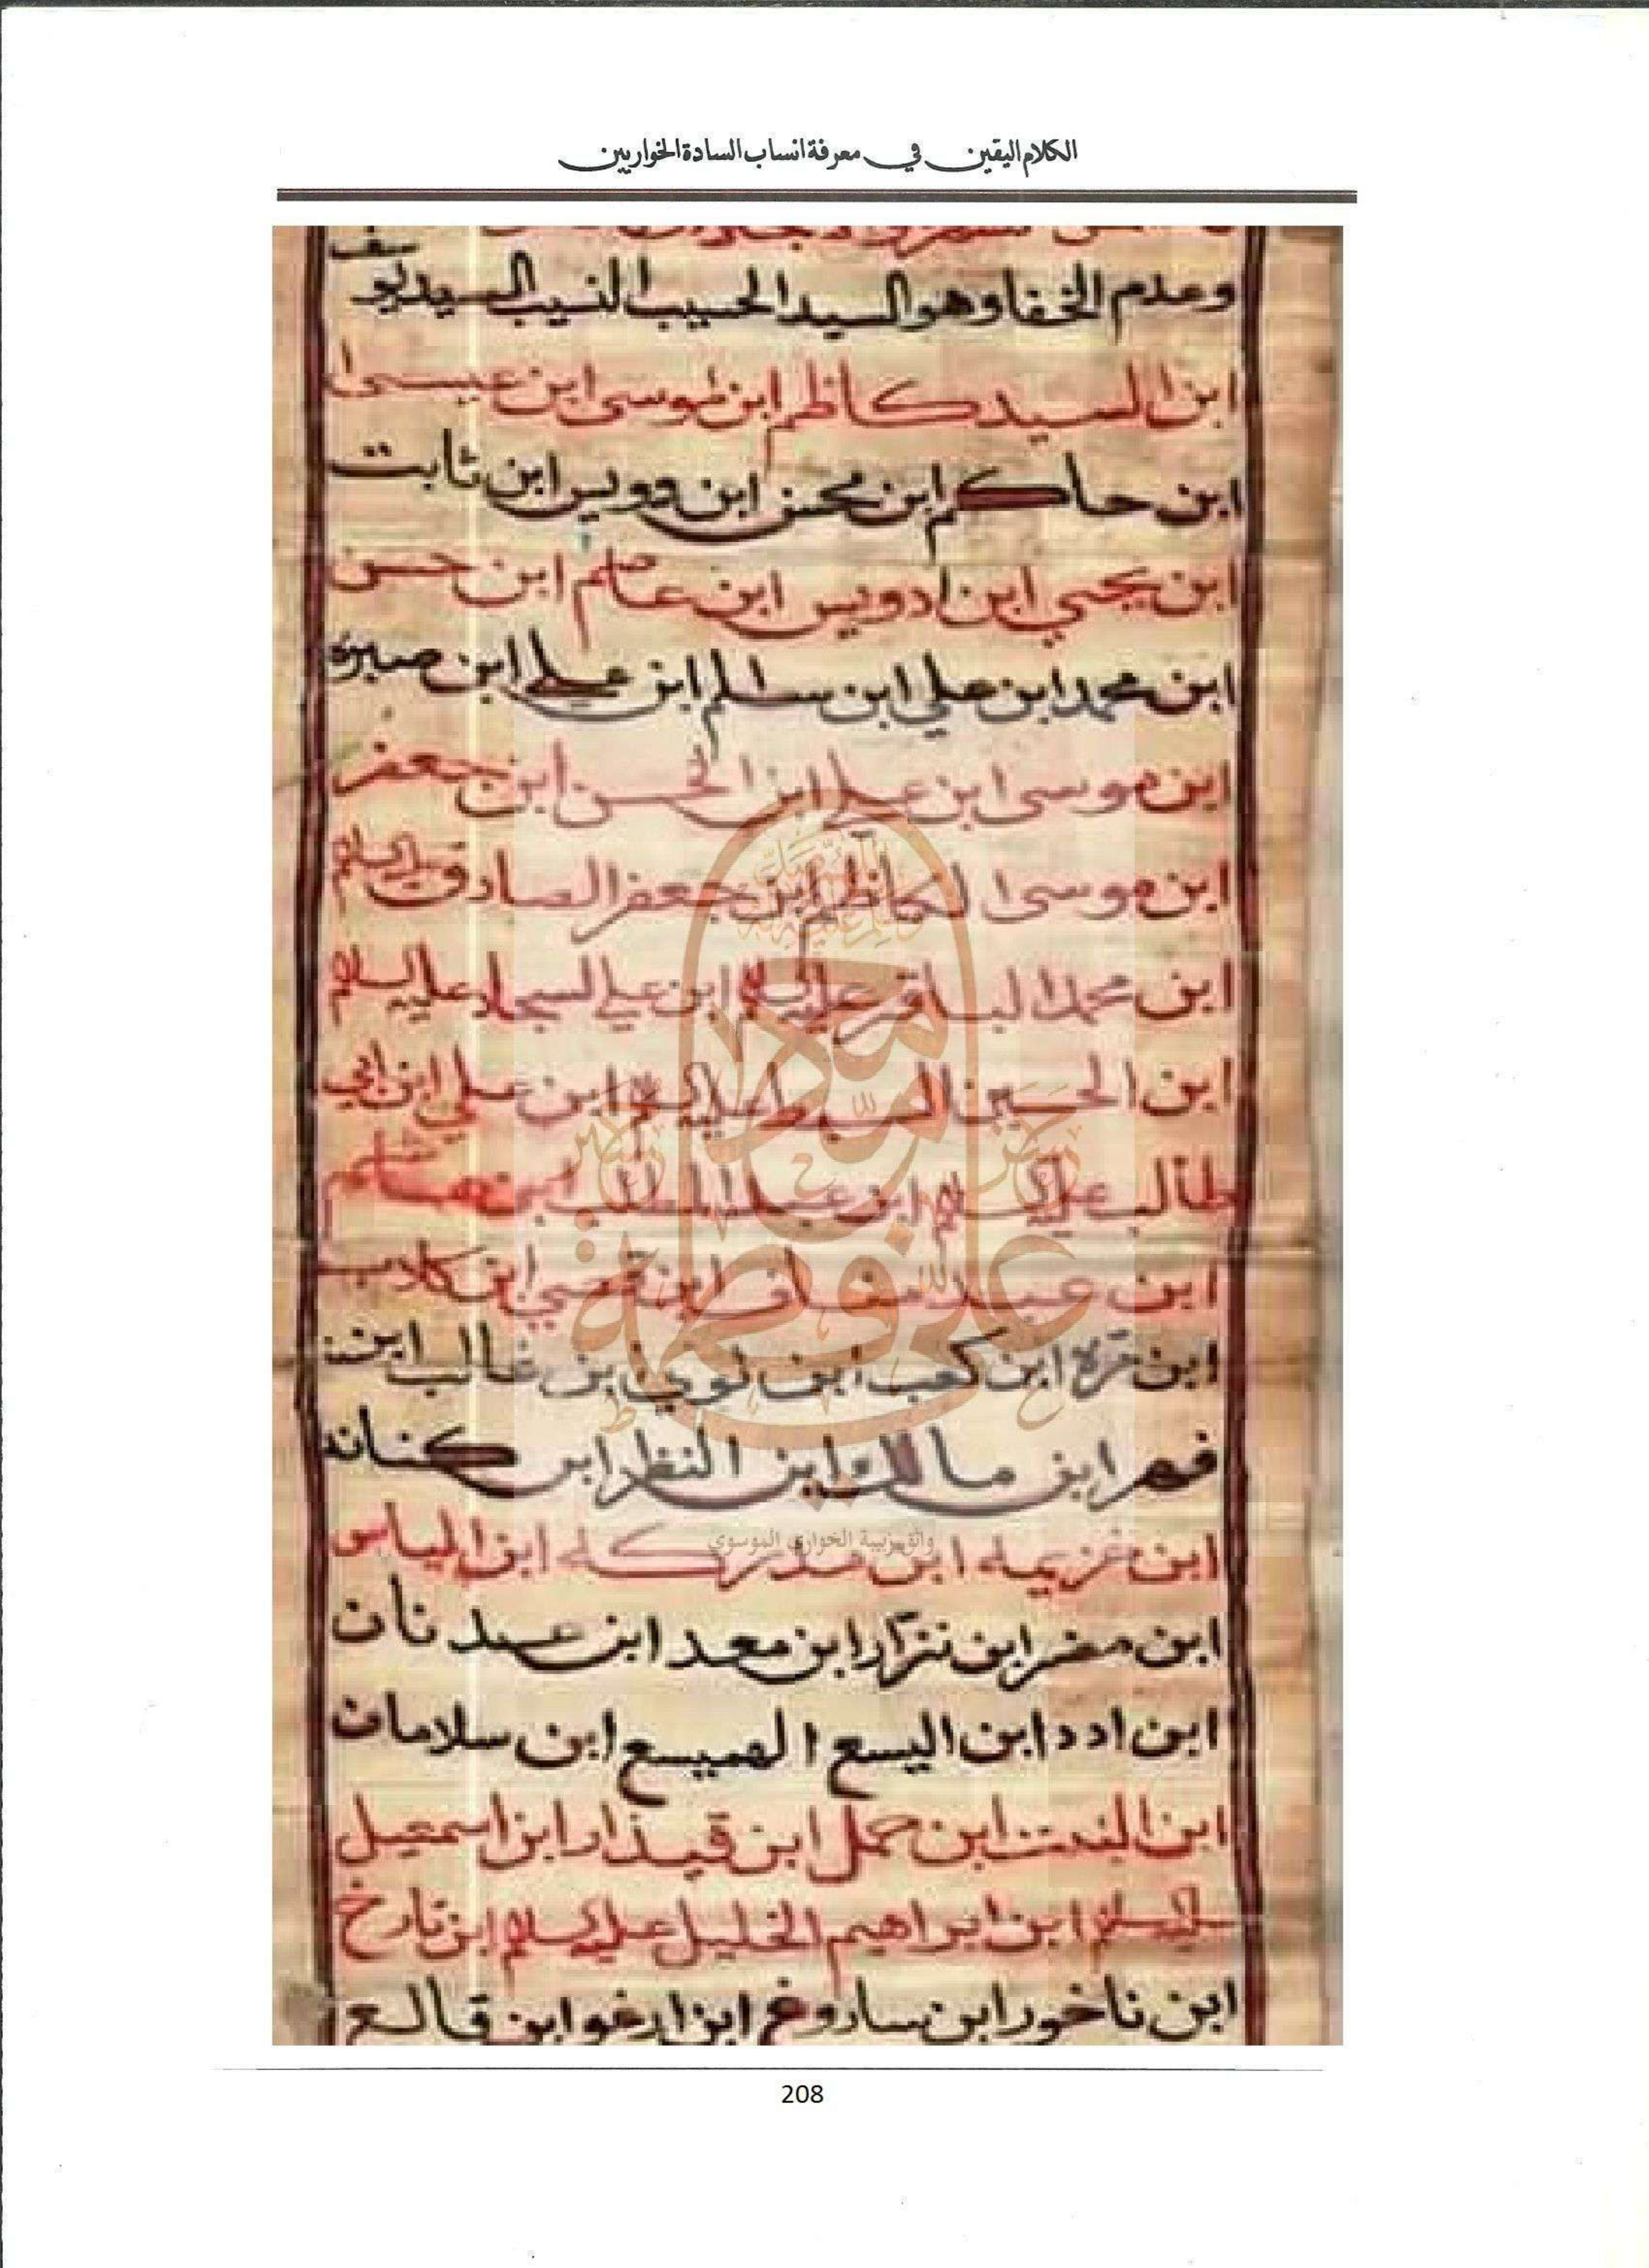 الكلام اليقين في معرفة انساب السادة الخواريين
وعدم الخفا وهو السيد الحسيب النسيب السيد يو
سف
ابن السيد كاظم ابن موسى ابن عيسى ا
ابن حاكم ابن محسن ابن دويس ابن ثابت
ابن يحيي ابن ادويس ابن عاصم ابن حسن
ابن محمد ابن علي ابن سالم ابن علي ابن صبره
ابن موسى ابن علي ابن الحسن ابن جعفر
ابن موسى الكاظم ابن جعفر الصادق عليه السلم
ابن محمد الباقر عليه السلام ابن علي السجاد عليه السلام
ابن الحسين السبط عليه السلم ابن علي ابن ابي
طالب عليه السلم ابن عبد المطلب ابن هاشم
ابن عبد مناف ابن قصي ابن كلاب
ابن مرة ابن كعب ابن لوي ابن غالب ابن
فهر ابن مالك ابن النظر ابن كنانه
وثق بيبة الخواري الموسوي
ابن خزيمه ابن مدركه ابن الياس
ابن مضر ابن نزار ابن معد ابن عدنان
ابن ادد ابن اليسع الهميسع ابن سلامان
ابن النبت ابن حمل ابن قيذار ابن اسمعيل
عليه السلم ابن ابراهيم الخليل عليه السلام ابن تارخ
ابن ناخور ابن ساروغ ابن ارغو ابن قالع
محمد
علي فاطمة
حسن حسين
208